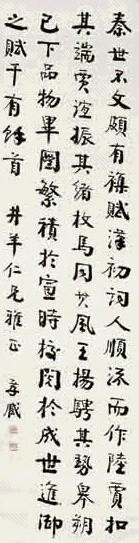 秦世不文頗有雜賦漢初詞人順流而作陸賈扣
其端賈誼振其緒枚馬同其風王揚騁其勢皋朔
已下品物畢圖繁積於宣時校閱於成世進御
之賦千有餘首 井羊仁兄雅正 孝臧